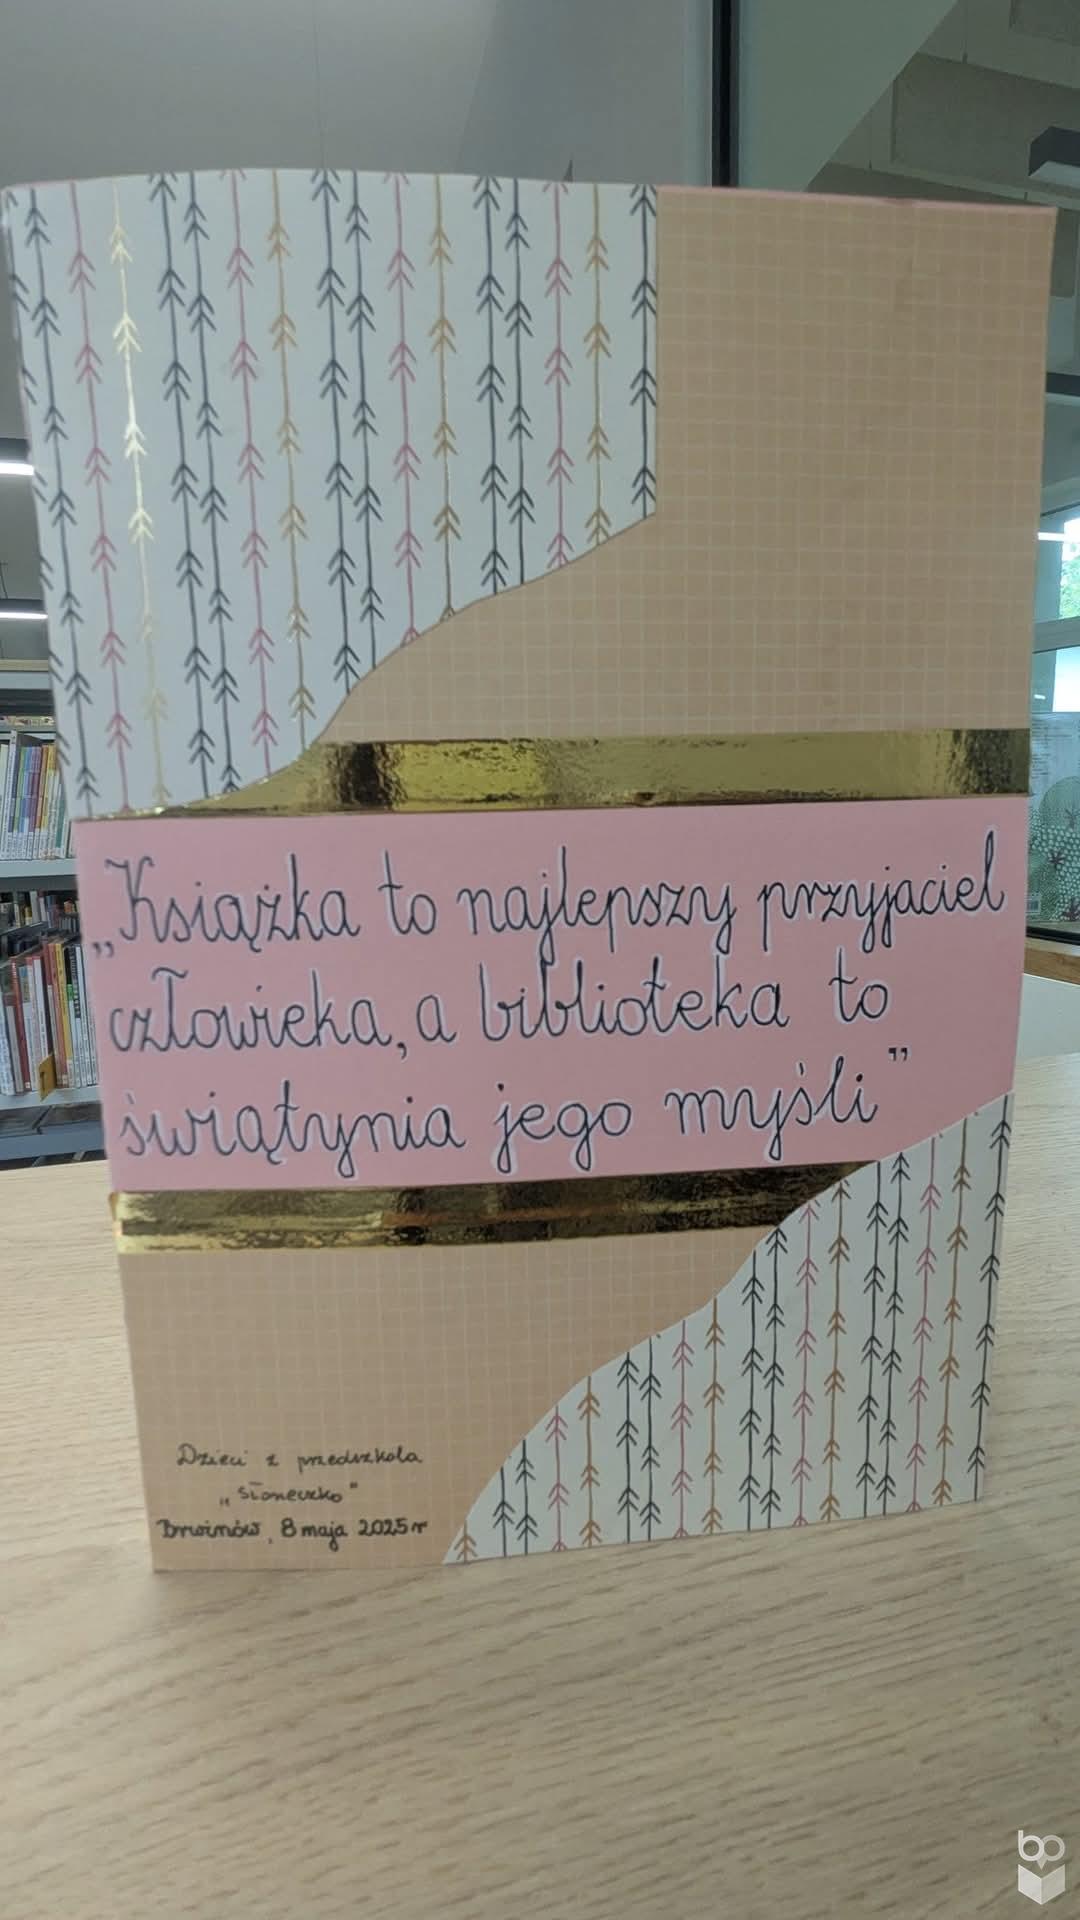 „Książka to najlepszy przyjaciel
człowieka, a biblioteka to
świątynia jego myśli”
Dzieci z przedszkola
„Słoneczko”
Brwinów, 8 maja 2025 r